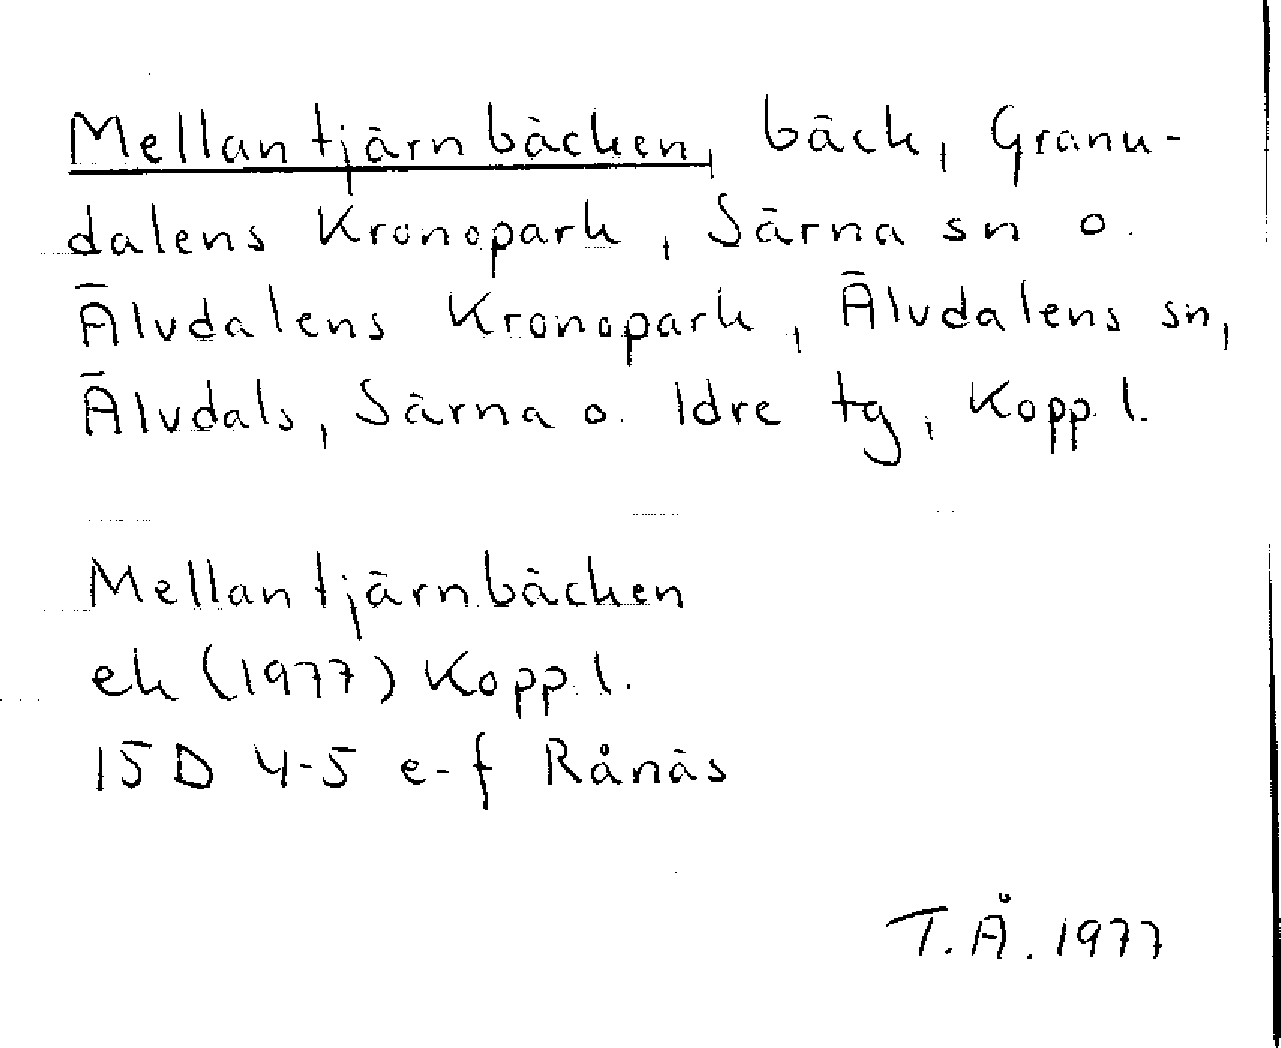 Mellantjärnbäcken, bäck, Granu-
dalens Kronopark, Särna sn o.
Älvdalens Kronopark, Älvdalens sn,
Älvdals, Särna o. Idre tg, Kopp. l.
Mellantjärnbäcken
ek (1977) Kopp. l.
15 D 4-5 e-f Rånäs
T. Å. 1977